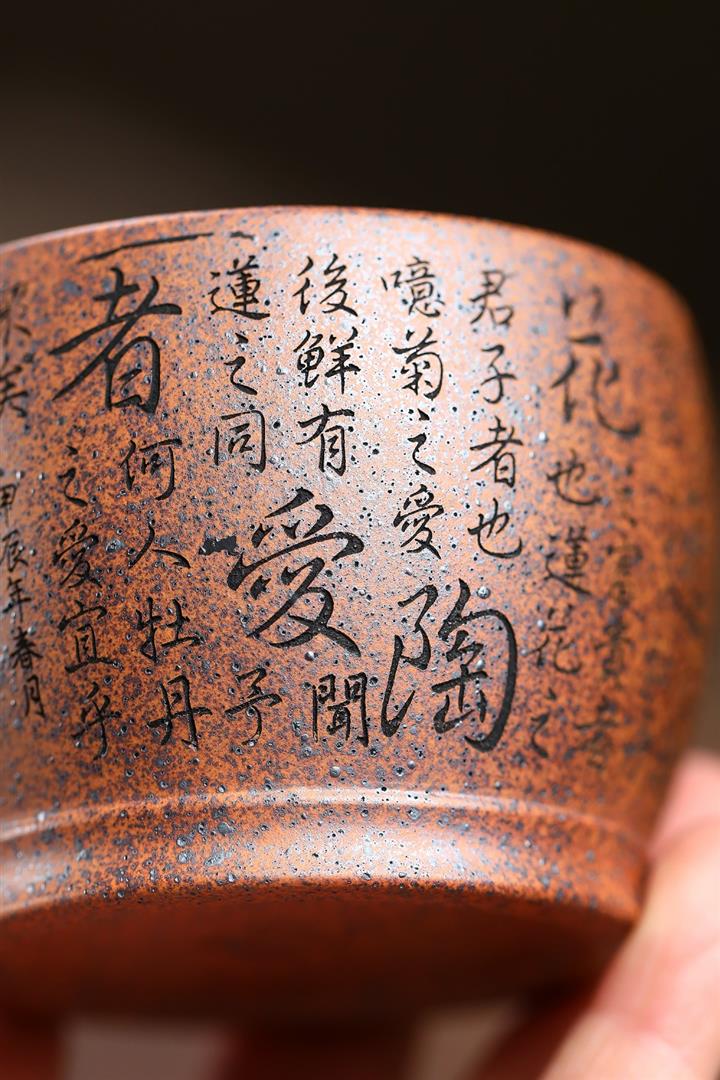 之富貴者
花也蓮花之
君子者也
噫菊之愛陶
後鮮有聞
蓮之同愛予
者何人牡丹
之愛宜乎
矣
甲辰年春月